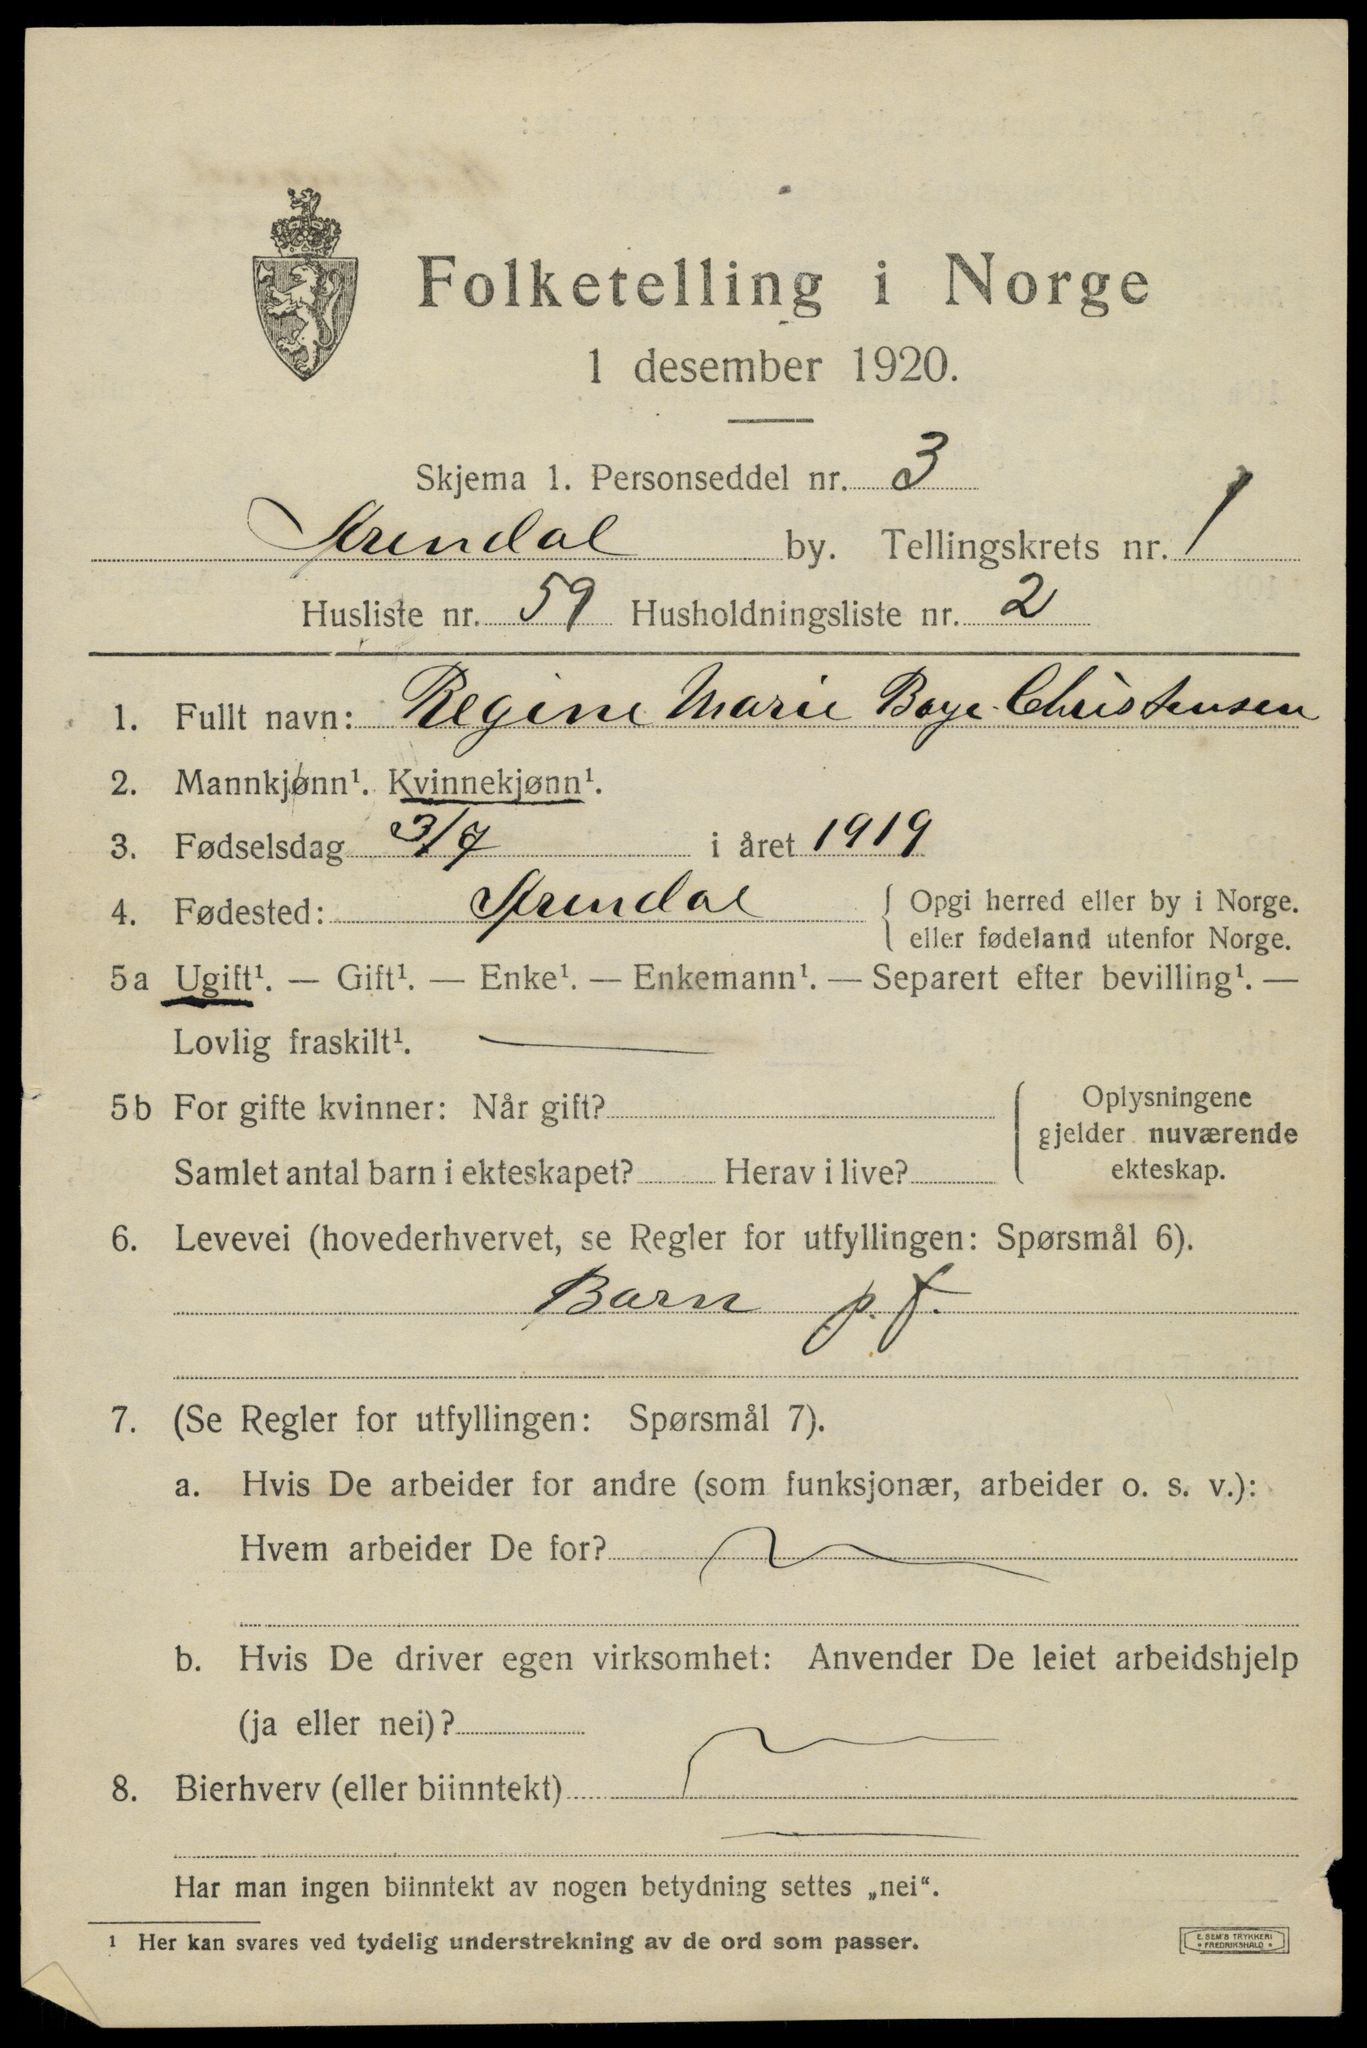 Folketelling i Norge
1 desember 1920.
Skjema 1. Personseddel nr. 3
Arendal by. Tellingskrets nr. 1
Husliste nr. 59 Husholdningsliste nr. 2
1. Fullt navn: Regine Marie Boye Christensen
2. Mannkjønn¹. Kvinnekjønn¹.
3. Fødselsdag 3/7 i året 1919
4. Fødested: Arendal { Opgi herred eller by i Norge.
eller fødeland utenfor Norge.
5a Ugift¹. — Gift¹. — Enke¹. — Enkemann¹. — Separert efter bevilling¹. —
Lovlig fraskilt¹.
5b For gifte kvinner: Når gift? { Oplysningene
gjelder nuværende
Samlet antal barn i ekteskapet? Herav i live? ekteskap.
6. Levevei (hovederhvervet, se Regler for utfyllingen: Spørsmål 6).
Barn p. f.
7. (Se Regler for utfyllingen: Spørsmål 7).
a. Hvis De arbeider for andre (som funksjonær, arbeider o. s. v.):
Hvem arbeider De for?
b. Hvis De driver egen virksomhet: Anvender De leiet arbeidshjelp
(ja eller nei)?
8. Bierhverv (eller biinntekt)
Har man ingen biinntekt av nogen betydning settes „nei“.
¹ Her kan svares ved tydelig understrekning av de ord som passer.
E. SEM'S TRYKKERI
• FREDRIKSHALD •